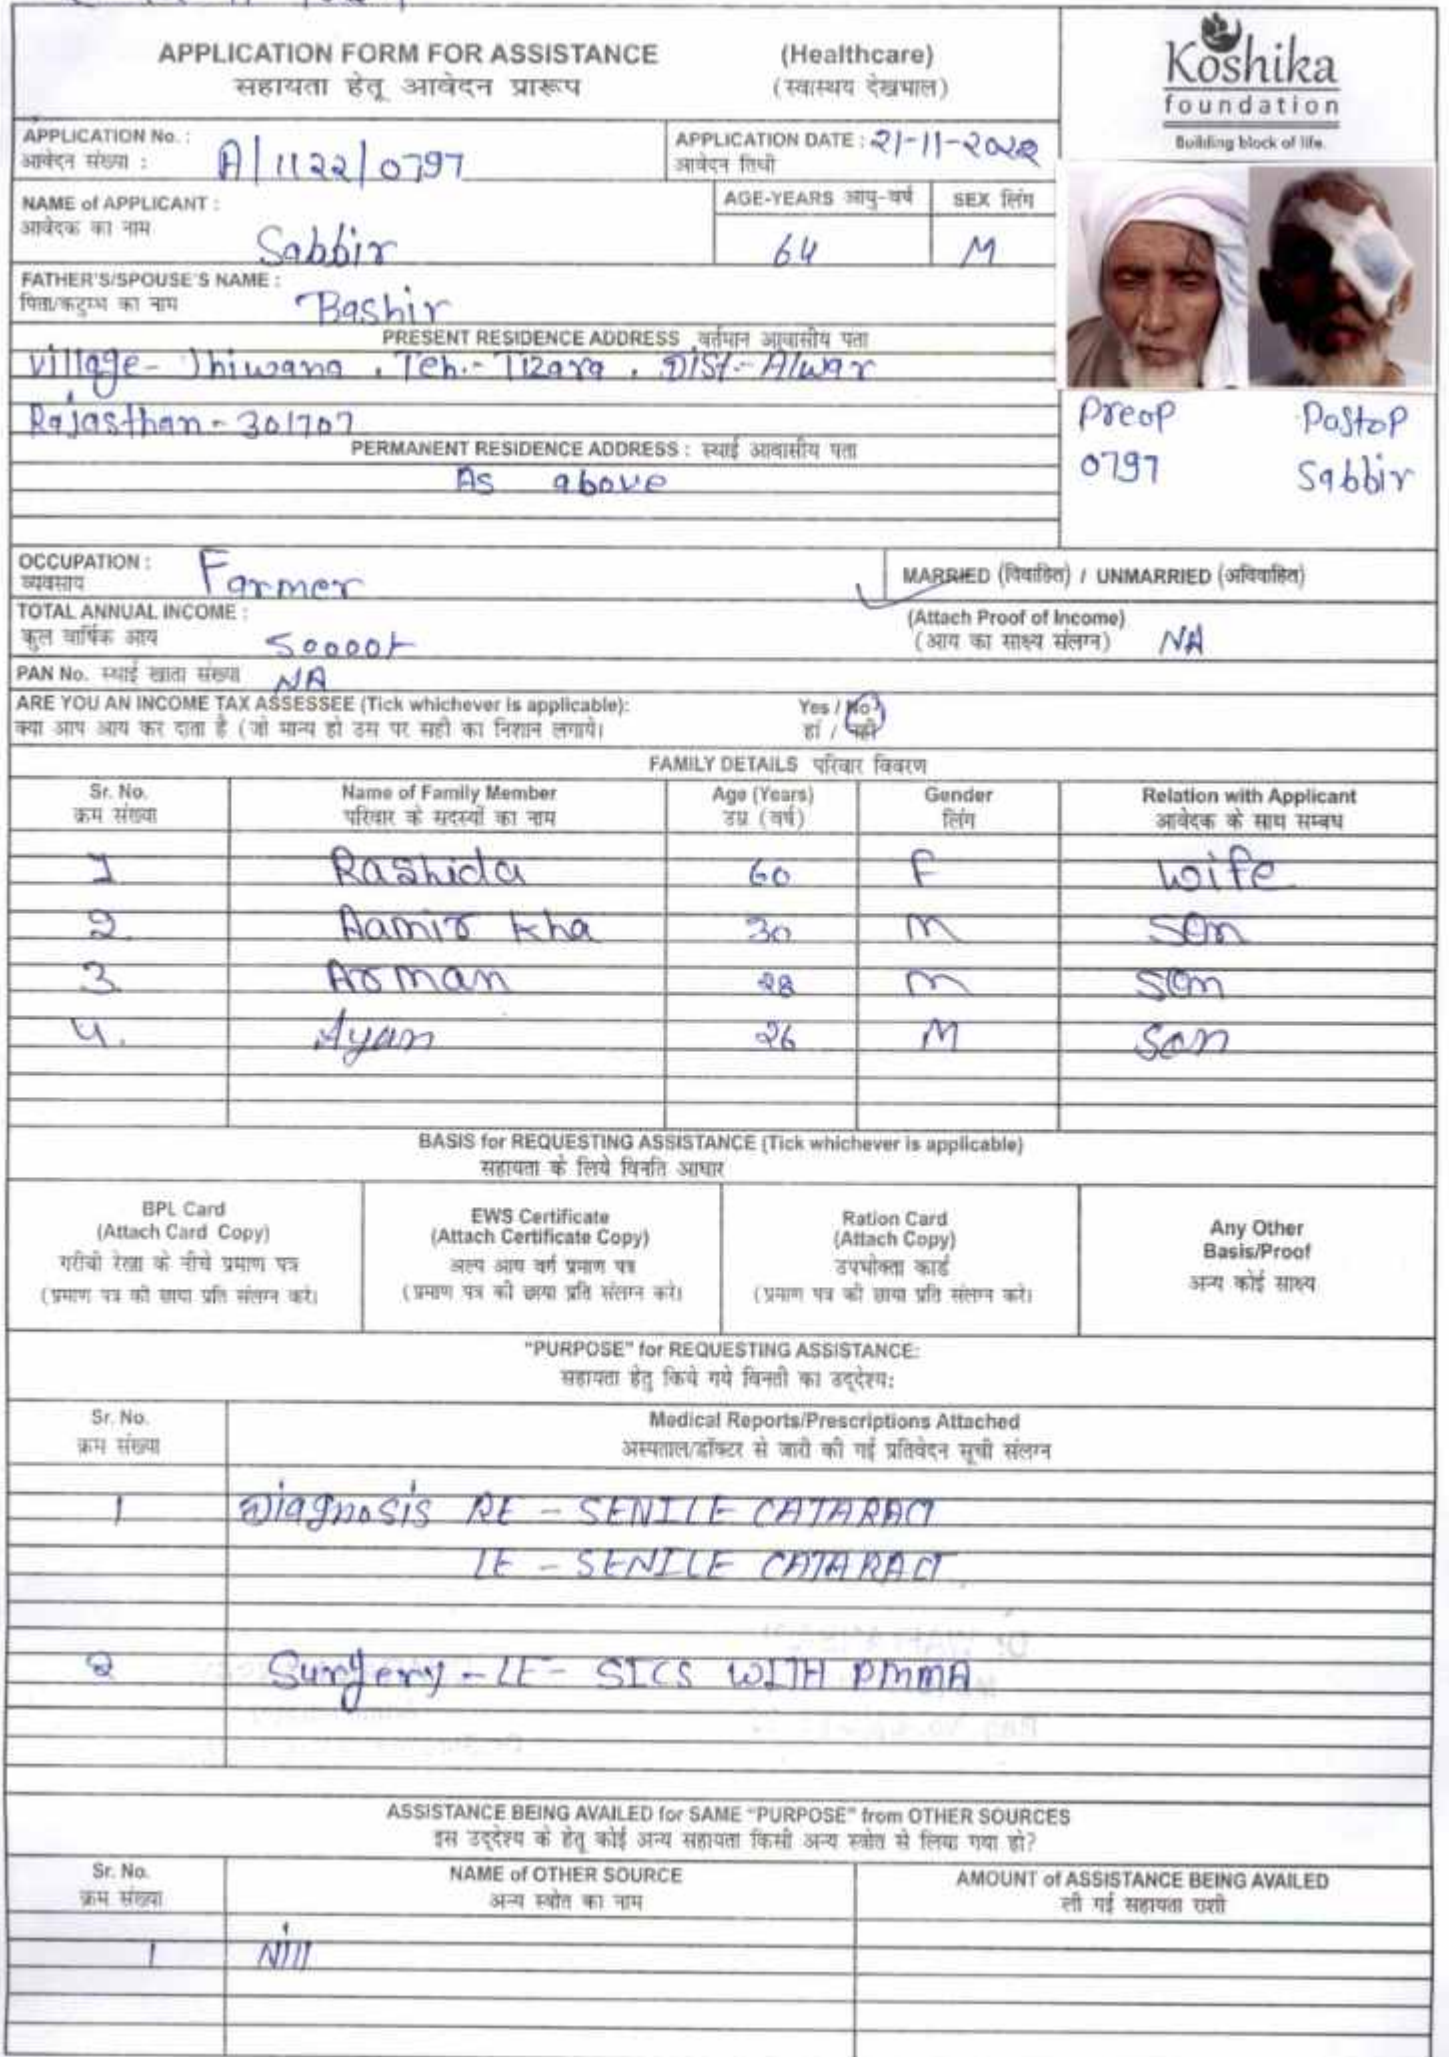 APPLICATION FORM FOR ASSISTANCE (Healthcare)
सहायता हेतू आवेदन प्रारूप (स्वास्थय देखभाल)
Koshika
foundation
Building block of life.
APPLICATION No. :
आवेदन संख्या : A/1122/0797
APPLICATION DATE : 21-11-2022
आवेदन तिथी
NAME of APPLICANT :
आवेदक का नाम Sabbir
AGE-YEARS आयु-वर्ष
64
SEX लिंग
M
FATHER'S/SPOUSE'S NAME :
पिता/कटुम्भ का नाम Bashir
PRESENT RESIDENCE ADDRESS वर्तमान आवासीय पता
Village- Jhiwana , Teh.- Tizara , Dist.- Alwar
Rajasthan - 301707
PERMANENT RESIDENCE ADDRESS : स्थाई आवासीय पता
As above
Preop Postop
0797 Sabbir
OCCUPATION :
व्यवसाय Farmer
MARRIED (विवाहित) / UNMARRIED (अविवाहित)
TOTAL ANNUAL INCOME :
कुल वार्षिक आय 50000/-
(Attach Proof of Income)
(आय का साक्ष्य संलग्न) NA
PAN No. स्थाई खाता संख्या NA
ARE YOU AN INCOME TAX ASSESSEE (Tick whichever is applicable): Yes / No
क्या आप आय कर दाता है (जो मान्य हो उस पर सही का निशान लगाये। हां / नहीं
FAMILY DETAILS परिवार विवरण
Sr. No. Name of Family Member Age (Years) Gender Relation with Applicant
क्रम संख्या परिवार के सदस्यों का नाम उम्र (वर्ष) लिंग आवेदक के साथ सम्बध
1 Rashida 60 F wife
2 Aamir kha 30 M son
3 Arman 28 M son
4. Ayan 26 M son
BASIS for REQUESTING ASSISTANCE (Tick whichever is applicable)
सहायता के लिये विनति आधार
BPL Card
(Attach Card Copy)
गरीबी रेखा के नीचे प्रमाण पत्र
(प्रमाण पत्र की छाया प्रति संलग्न करे।
EWS Certificate
(Attach Certificate Copy)
अल्प आय वर्ग प्रमाण पत्र
(प्रमाण पत्र की छाया प्रति संलग्न करे।
Ration Card
(Attach Copy)
उपभोक्ता कार्ड
(प्रमाण पत्र की छाया प्रति संलग्न करे।
Any Other
Basis/Proof
अन्य कोई साक्ष्य
"PURPOSE" for REQUESTING ASSISTANCE:
सहायता हेतु किये गये विनती का उद्देश्य:
Sr. No. Medical Reports/Prescriptions Attached
क्रम संख्या अस्पताल/डॉक्टर से जारी की गई प्रतिवेदन सूची संलग्न
1 Diagnosis RE - SENILE CATARACT
LE - SENILE CATARACT
2 Surgery - LE - SICS WITH PMMA
ASSISTANCE BEING AVAILED for SAME "PURPOSE" from OTHER SOURCES
इस उद्देश्य के हेतू कोई अन्य सहायता किसी अन्य स्त्रोत से लिया गया हो?
Sr. No. NAME of OTHER SOURCE AMOUNT of ASSISTANCE BEING AVAILED
क्रम संख्या अन्य स्त्रोत का नाम ली गई सहायता राशी
1 Nill